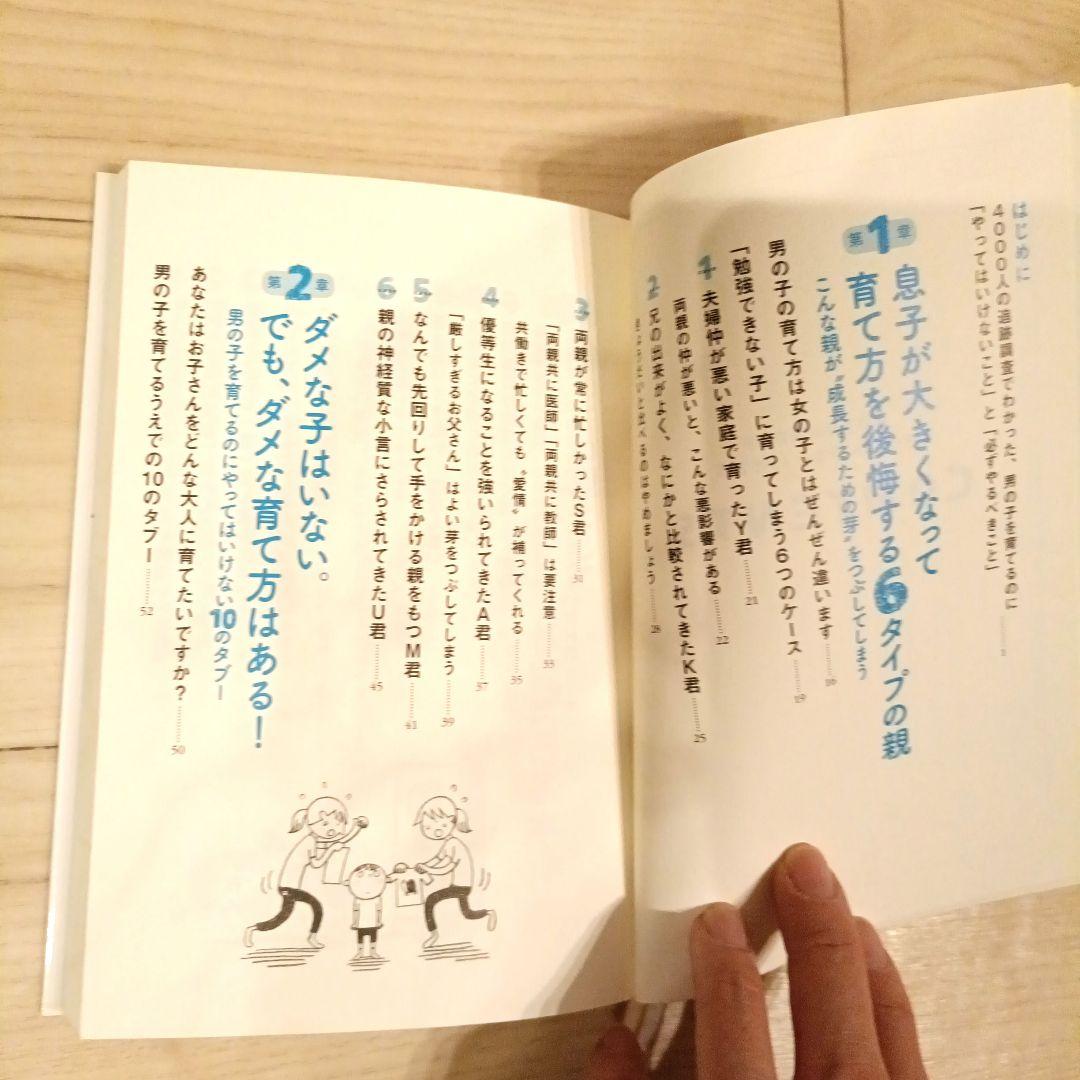 はじめに
4000人の追跡調査でわかった、男の子を育てるのに
「やってはいけないこと」と「必ずやるべきこと」
第1章
息子が大きくなって
育て方を後悔する6タイプの親
こんな親が“成長するための芽”をつぶしてしまう
男の子の育て方は女の子とはぜんぜん違います 16
「勉強できない子」に育ってしまう6つのケース 19
1 夫婦仲が悪い家庭で育ったY君 21
両親の仲が悪いと、こんな悪影響がある 22
2 兄の出来がよく、なにかと比較されてきたK君 25
きょうだいと比べるのはやめましょう 28
3 両親が常に忙しかったS君 31
「両親共に医師」「両親共に教師」は要注意 33
共働きで忙しくても“愛情”が補ってくれる 35
4 優等生になることを強いられてきたA君 37
「厳しすぎるお父さん」はよい芽をつぶしてしまう 39
5 なんでも先回りして手をかける親をもつM君 41
6 親の神経質な小言にさらされてきたU君 45
第2章
ダメな子はいない。
でも、ダメな育て方はある！
男の子を育てるのにやってはいけない10のタブー
あなたはお子さんをどんな大人に育てたいですか？ 50
男の子を育てるうえでの10のタブー 52